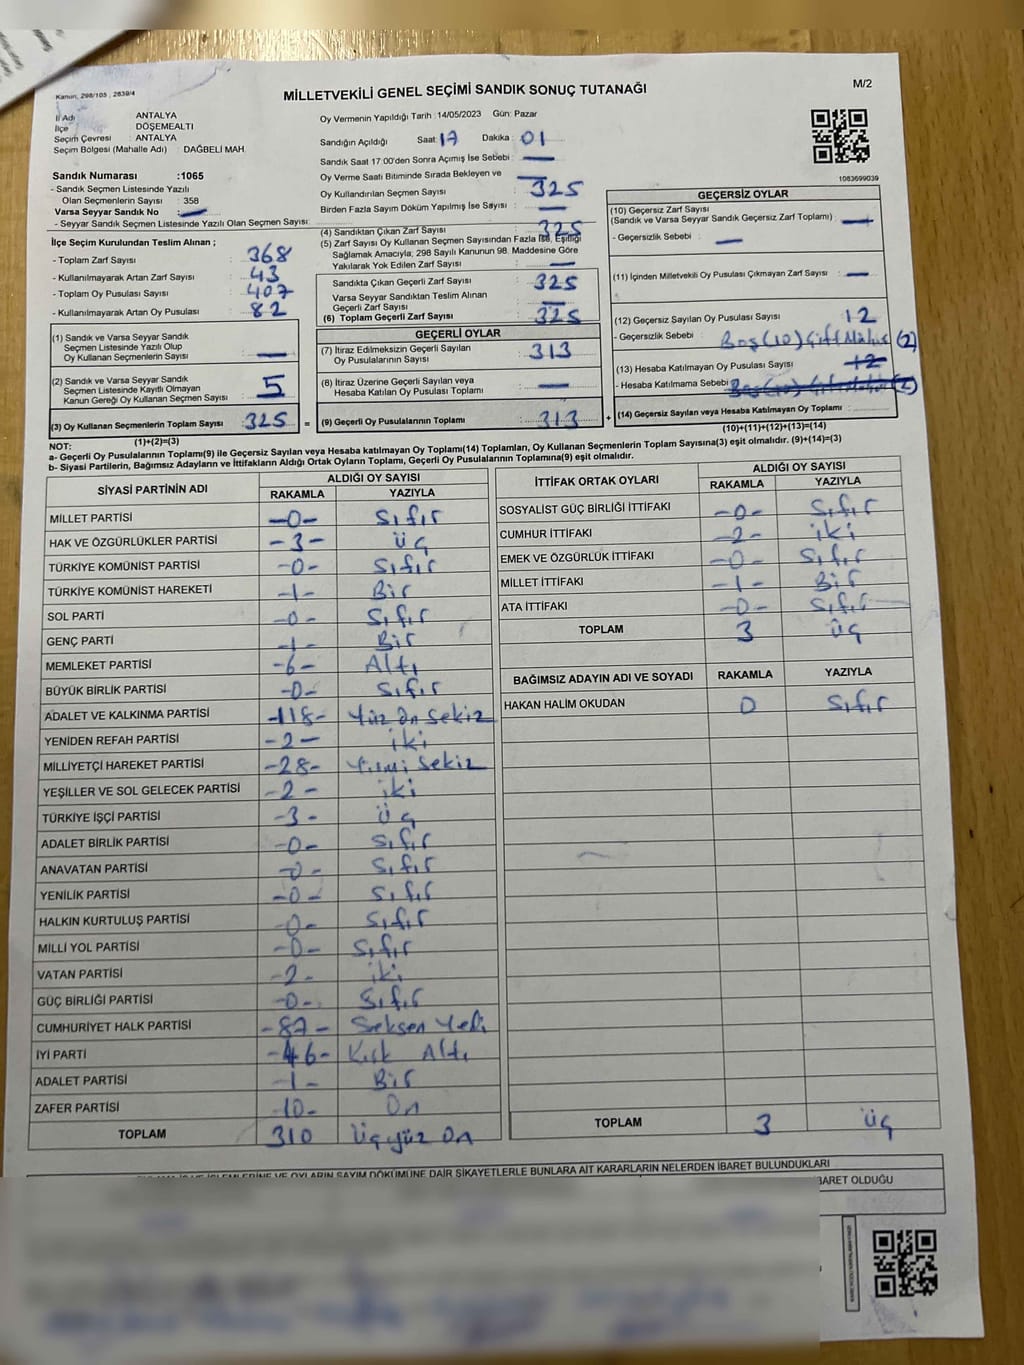 Kanun, 298/105 , 2839/4
MİLLETVEKİLİ GENEL SEÇİMİ SANDIK SONUÇ TUTANAĞI
M/2
İl Adı ANTALYA
İlçe DÖŞEMEALTI
Seçim Çevresi : ANTALYA
Seçim Bölgesi (Mahalle Adı) : DAĞBELİ MAH.
Oy Vermenin Yapıldığı Tarih : 14/05/2023 Gün: Pazar
Sandığın Açıldığı Saat: 17 Dakika : 01
Sandık Saat 17:00'den Sonra Açımış İse Sebebi : —
Oy Verme Saati Bitiminde Sırada Bekleyen ve : —
Oy Kullandırılan Seçmen Sayısı : 325
Birden Fazla Sayım Döküm Yapılmış İse Sayısı : —
1063699039
Sandık Numarası :1065
- Sandık Seçmen Listesinde Yazılı
Olan Seçmenlerin Sayısı : 358
Varsa Seyyar Sandık No : —
- Seyyar Seçmen Listesinde Yazılı Olan Seçmen Sayısı:
İlçe Seçim Kurulundan Teslim Alınan ;
- Toplam Zarf Sayısı : 368
- Kullanılmayarak Artan Zarf Sayısı : 43
- Toplam Oy Pusulası Sayısı : 407
- Kullanılmayarak Artan Oy Pusulası : 82
(1) Sandık ve Varsa Seyyar Sandık
Seçmen Listesinde Yazılı Olup
Oy Kullanan Seçmenlerin Sayısı : —
(2) Sandık ve Varsa Seyyar Sandık
Seçmen Listesinde Kayıtlı Olmayan
Kanun Gereği Oy Kullanan Seçmen Sayısı : 5
(3) Oy Kullanan Seçmenlerin Toplam Sayısı : 325
(1)+(2)=(3)
(4) Sandıktan Çıkan Zarf Sayısı : 325
(5) Zarf Sayısı Oy Kullanan Seçmen Sayısından Fazla İse, Eşitliği
Sağlamak Amacıyla; 298 Sayılı Kanunun 98. Maddesine Göre
Yakılarak Yok Edilen Zarf Sayısı : —
Sandıkta Çıkan Geçerli Zarf Sayısı : 325
Varsa Seyyar Sandıktan Teslim Alınan
Geçerli Zarf Sayısı : —
(6) Toplam Geçerli Zarf Sayısı : 325
GEÇERLİ OYLAR
(7) İtiraz Edilmeksizin Geçerli Sayılan
Oy Pusulalarının Sayısı : 313
(8) İtiraz Üzerine Geçerli Sayılan veya
Hesaba Katılan Oy Pusulası Toplamı : —
(9) Geçerli Oy Pusulalarının Toplamı : 313
GEÇERSİZ OYLAR
(10) Geçersiz Zarf Sayısı
(Sandık ve Varsa Seyyar Sandık Geçersiz Zarf Toplamı) : —
- Geçersizlik Sebebi : —
(11) İçinden Milletvekili Oy Pusulası Çıkmayan Zarf Sayısı : —
(12) Geçersiz Sayılan Oy Pusulası Sayısı : 12
- Geçersizlik Sebebi : Boş(10) Çift Mühür (2)
(13) Hesaba Katılmayan Oy Pusulası Sayısı : 12
- Hesaba Katılmama Sebebi : Boş(10) Çift Mühür (2)
(14) Geçersiz Sayılan veya Hesaba Katılmayan Oy Toplamı :
(10)+(11)+(12)+(13)=(14)
NOT:
a- Geçerli Oy Pusulalarının Toplam(9) ile Geçersiz Sayılan veya Hesaba katılmayan Oy Toplamı(14) Toplamları, Oy Kullanan Seçmenlerin Toplam Sayısına(3) eşit olmalıdır. (9)+(14)=(3)
b- Siyasi Partilerin, Bağımsız Adayların ve İttifakların Aldığı Ortak Oyların Toplamı, Geçerli Oy Pusulalarının Toplamına(9) eşit olmalıdır.
SİYASİ PARTİNİN ADI ALDIĞI OY SAYISI
RAKAMLA YAZIYLA
MİLLET PARTİSİ -0- Sıfır
HAK VE ÖZGÜRLÜKLER PARTİSİ -3- Üç
TÜRKİYE KOMÜNİST PARTİSİ -0- Sıfır
TÜRKİYE KOMÜNİST HAREKETİ -1- Bir
SOL PARTİ -0- Sıfır
GENÇ PARTİ -1- Bir
MEMLEKET PARTİSİ -6- Altı
BÜYÜK BİRLİK PARTİSİ -0- Sıfır
ADALET VE KALKINMA PARTİSİ -118- Yüz On Sekiz
YENİDEN REFAH PARTİSİ -2- iki
MİLLİYETÇİ HAREKET PARTİSİ -28- Yirmi Sekiz
YEŞİLLER VE SOL GELECEK PARTİSİ -2- iki
TÜRKİYE İŞÇİ PARTİSİ -3- Üç
ADALET BİRLİK PARTİSİ -0- Sıfır
ANAVATAN PARTİSİ -0- Sıfır
YENİLİK PARTİSİ -0- Sıfır
HALKIN KURTULUŞ PARTİSİ -0- Sıfır
MİLLİ YOL PARTİSİ -0- Sıfır
VATAN PARTİSİ -2- iki
GÜÇ BİRLİĞİ PARTİSİ -0- Sıfır
CUMHURİYET HALK PARTİSİ -87- Seksen Yedi
İYİ PARTİ -46- Kırk Altı
ADALET PARTİSİ -1- Bir
ZAFER PARTİSİ -10- On
TOPLAM 310 Üçyüz On
İTTİFAK ORTAK OYLARI ALDIĞI OY SAYISI
RAKAMLA YAZIYLA
SOSYALİST GÜÇ BİRLİĞİ İTTİFAKI -0- Sıfır
CUMHUR İTTİFAKI -2- iki
EMEK VE ÖZGÜRLÜK İTTİFAKI -0- Sıfır
MİLLET İTTİFAKI -1- Bir
ATA İTTİFAKI -0- Sıfır
TOPLAM 3 Üç
BAĞIMSIZ ADAYIN ADI VE SOYADI RAKAMLA YAZIYLA
HAKAN HALİM OKUDAN 0 Sıfır
TOPLAM 3 Üç
OYLARIN SAYIM DÖKÜMÜNE DAİR ŞİKAYETLERLE BUNLARA AİT KARARLARIN NELERDEN İBARET BULUNDUKLARI
BARET OLDUĞU